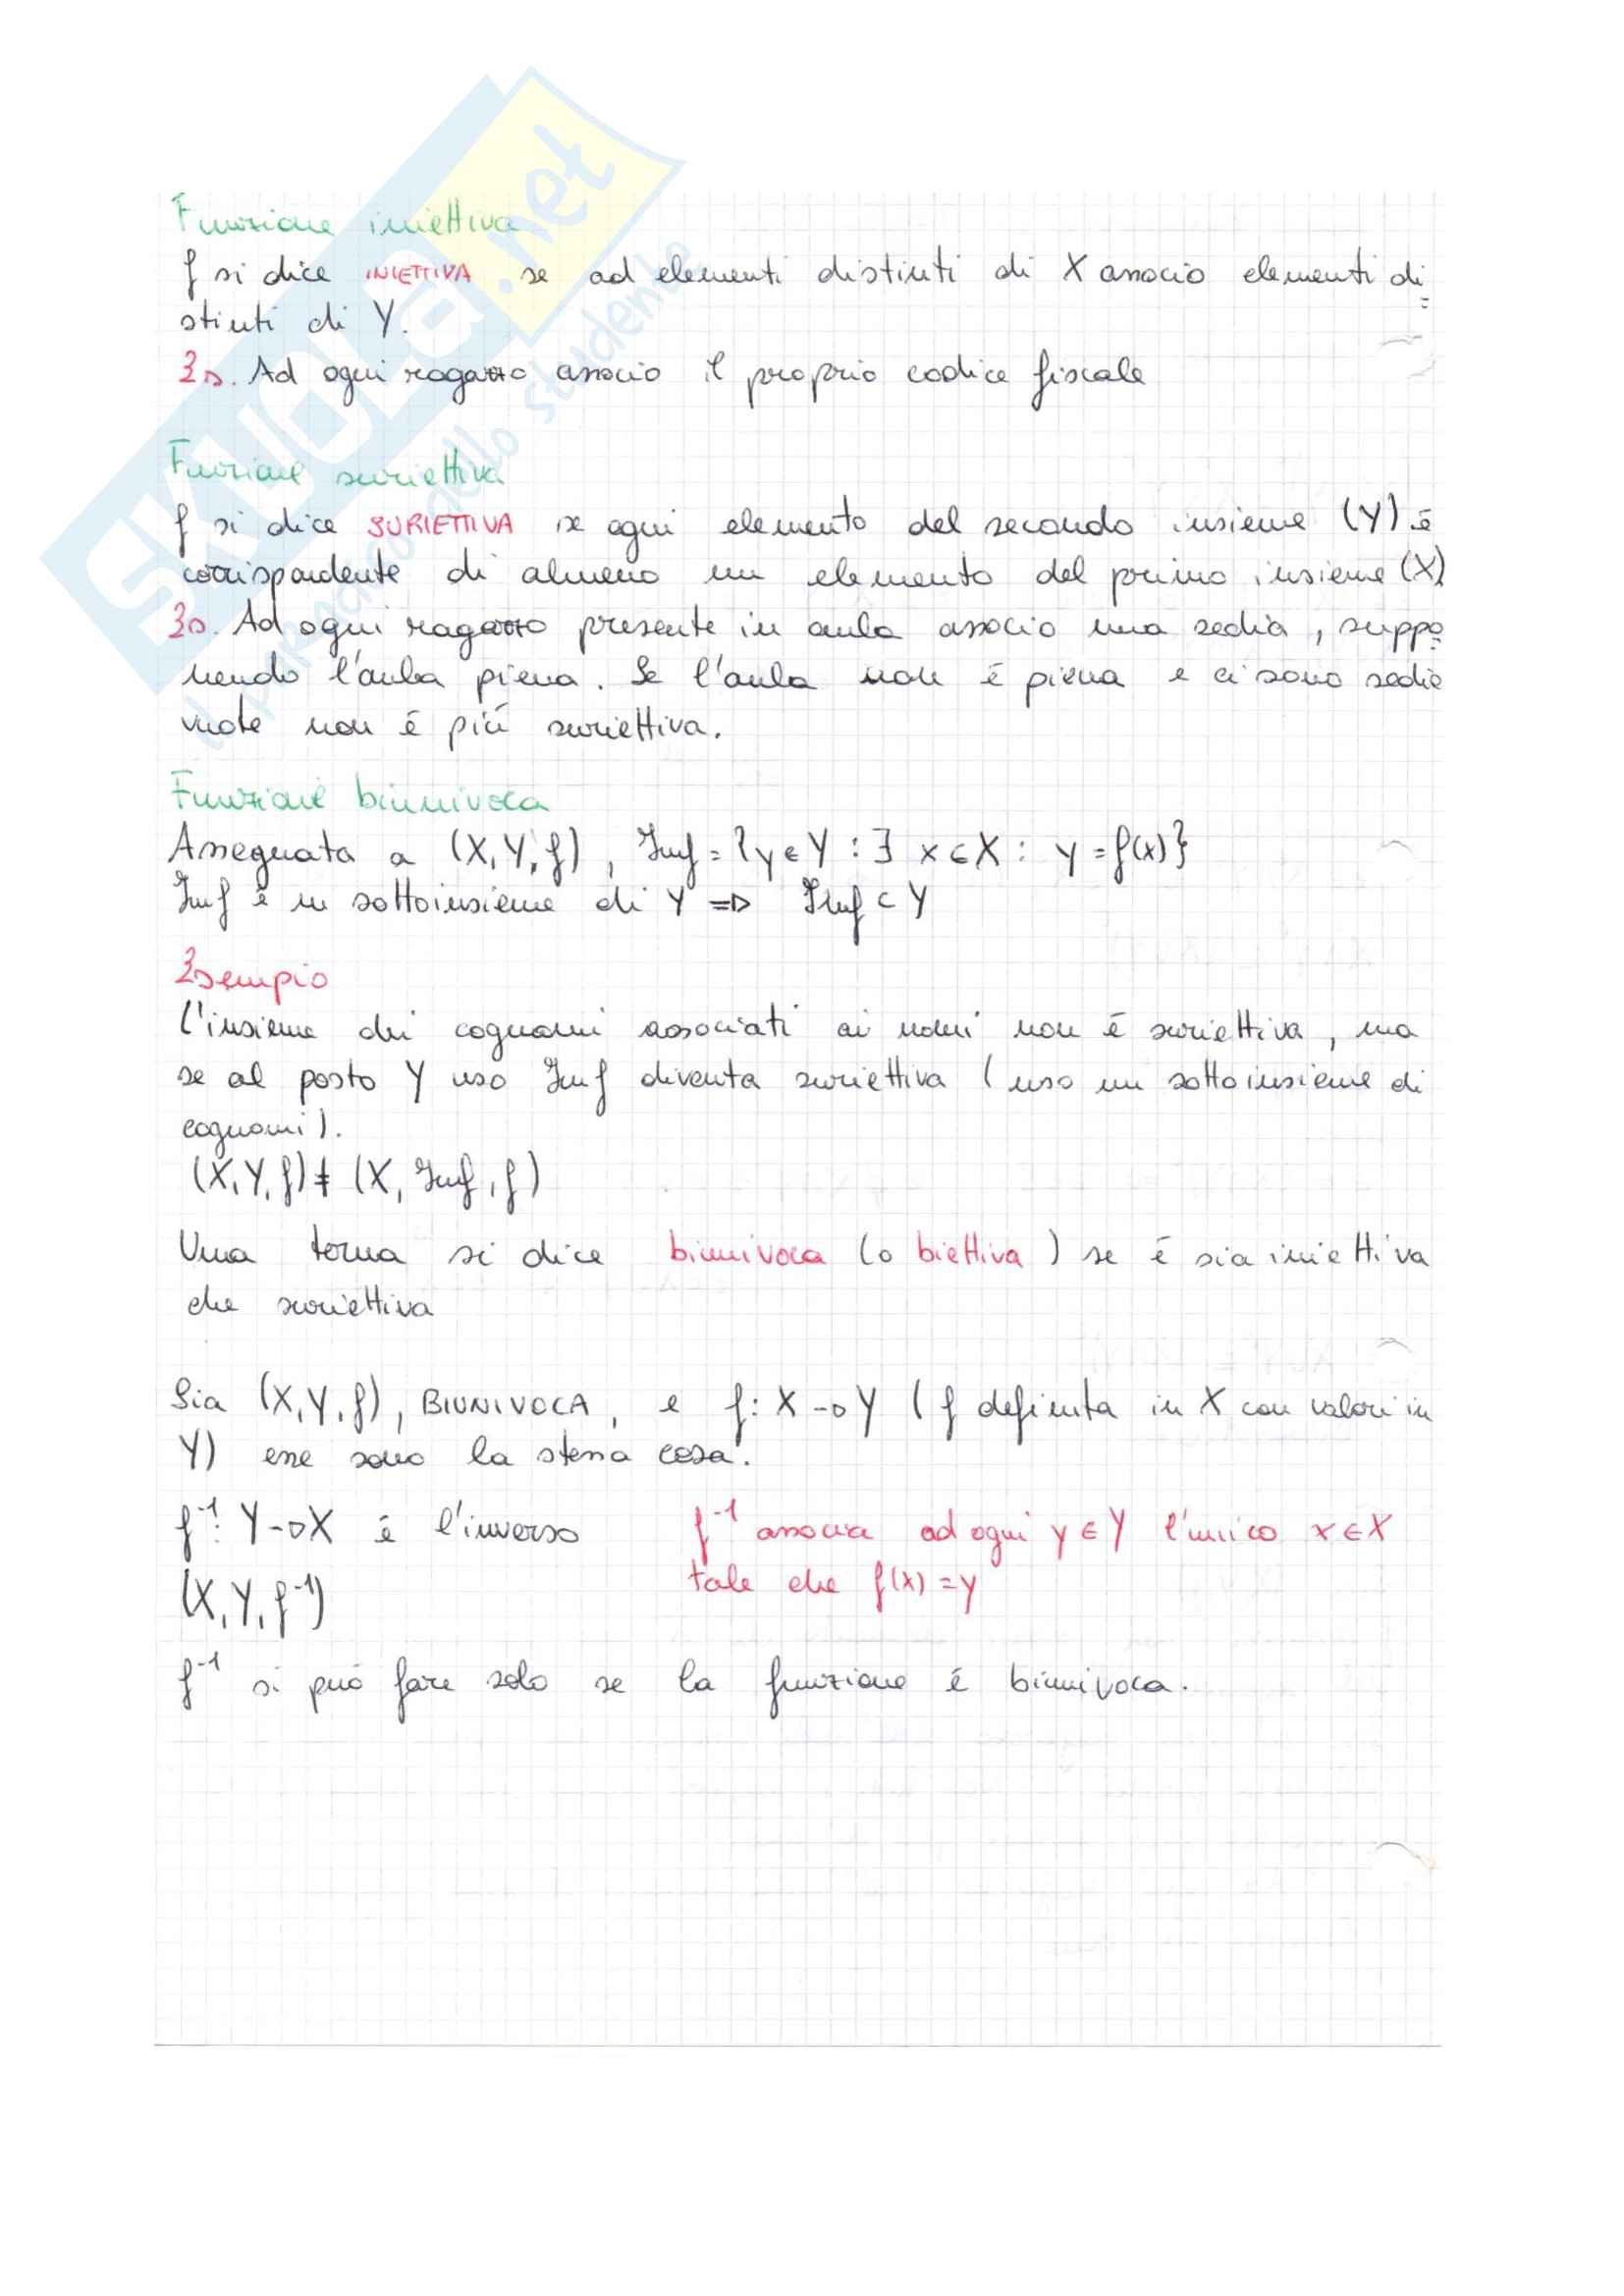 Funzione iniettiva
f si dice INIETTIVA se ad elementi distinti di X associo elementi di
stinti di Y.
Es. Ad ogni ragazzo associo il proprio codice fiscale
Funzione suriettiva
f si dice SURIETTIVA se ogni elemento del secondo insieme (Y) è
corrispondente di almeno un elemento del primo insieme (X)
Es. Ad ogni ragazzo presente in aula associo una sedia, suppo
nendo l'aula piena. Se l'aula non è piena e ci sono sedie
vuote non è più suriettiva.
Funzione biunivoca
Assegnata a (X, Y, f), Imf = {y ∈ Y : ∃ x ∈ X : y = f(x)}
Imf è un sottoinsieme di Y => Imf ⊂ Y
Esempio
L'insieme dei cognomi associati ai nomi non è suriettiva, ma
se al posto Y uso Imf diventa suriettiva (uso un sottoinsieme di
cognomi).
(X, Y, f) ≠ (X, Imf, f)
Una terna si dice biunivoca (o biettiva) se è sia iniettiva
che suriettiva
Sia (X, Y, f), BIUNIVOCA, e f: X → Y (f definita in X con valori in
Y) esse sono la stessa cosa.
f⁻¹: Y → X è l'inverso
(X, Y, f⁻¹)
f⁻¹ associa ad ogni y ∈ Y l'unico x ∈ X
tale che f(x) = y
f⁻¹ si può fare solo se la funzione è biunivoca.
SKUOLA.net
il paradiso dello studente